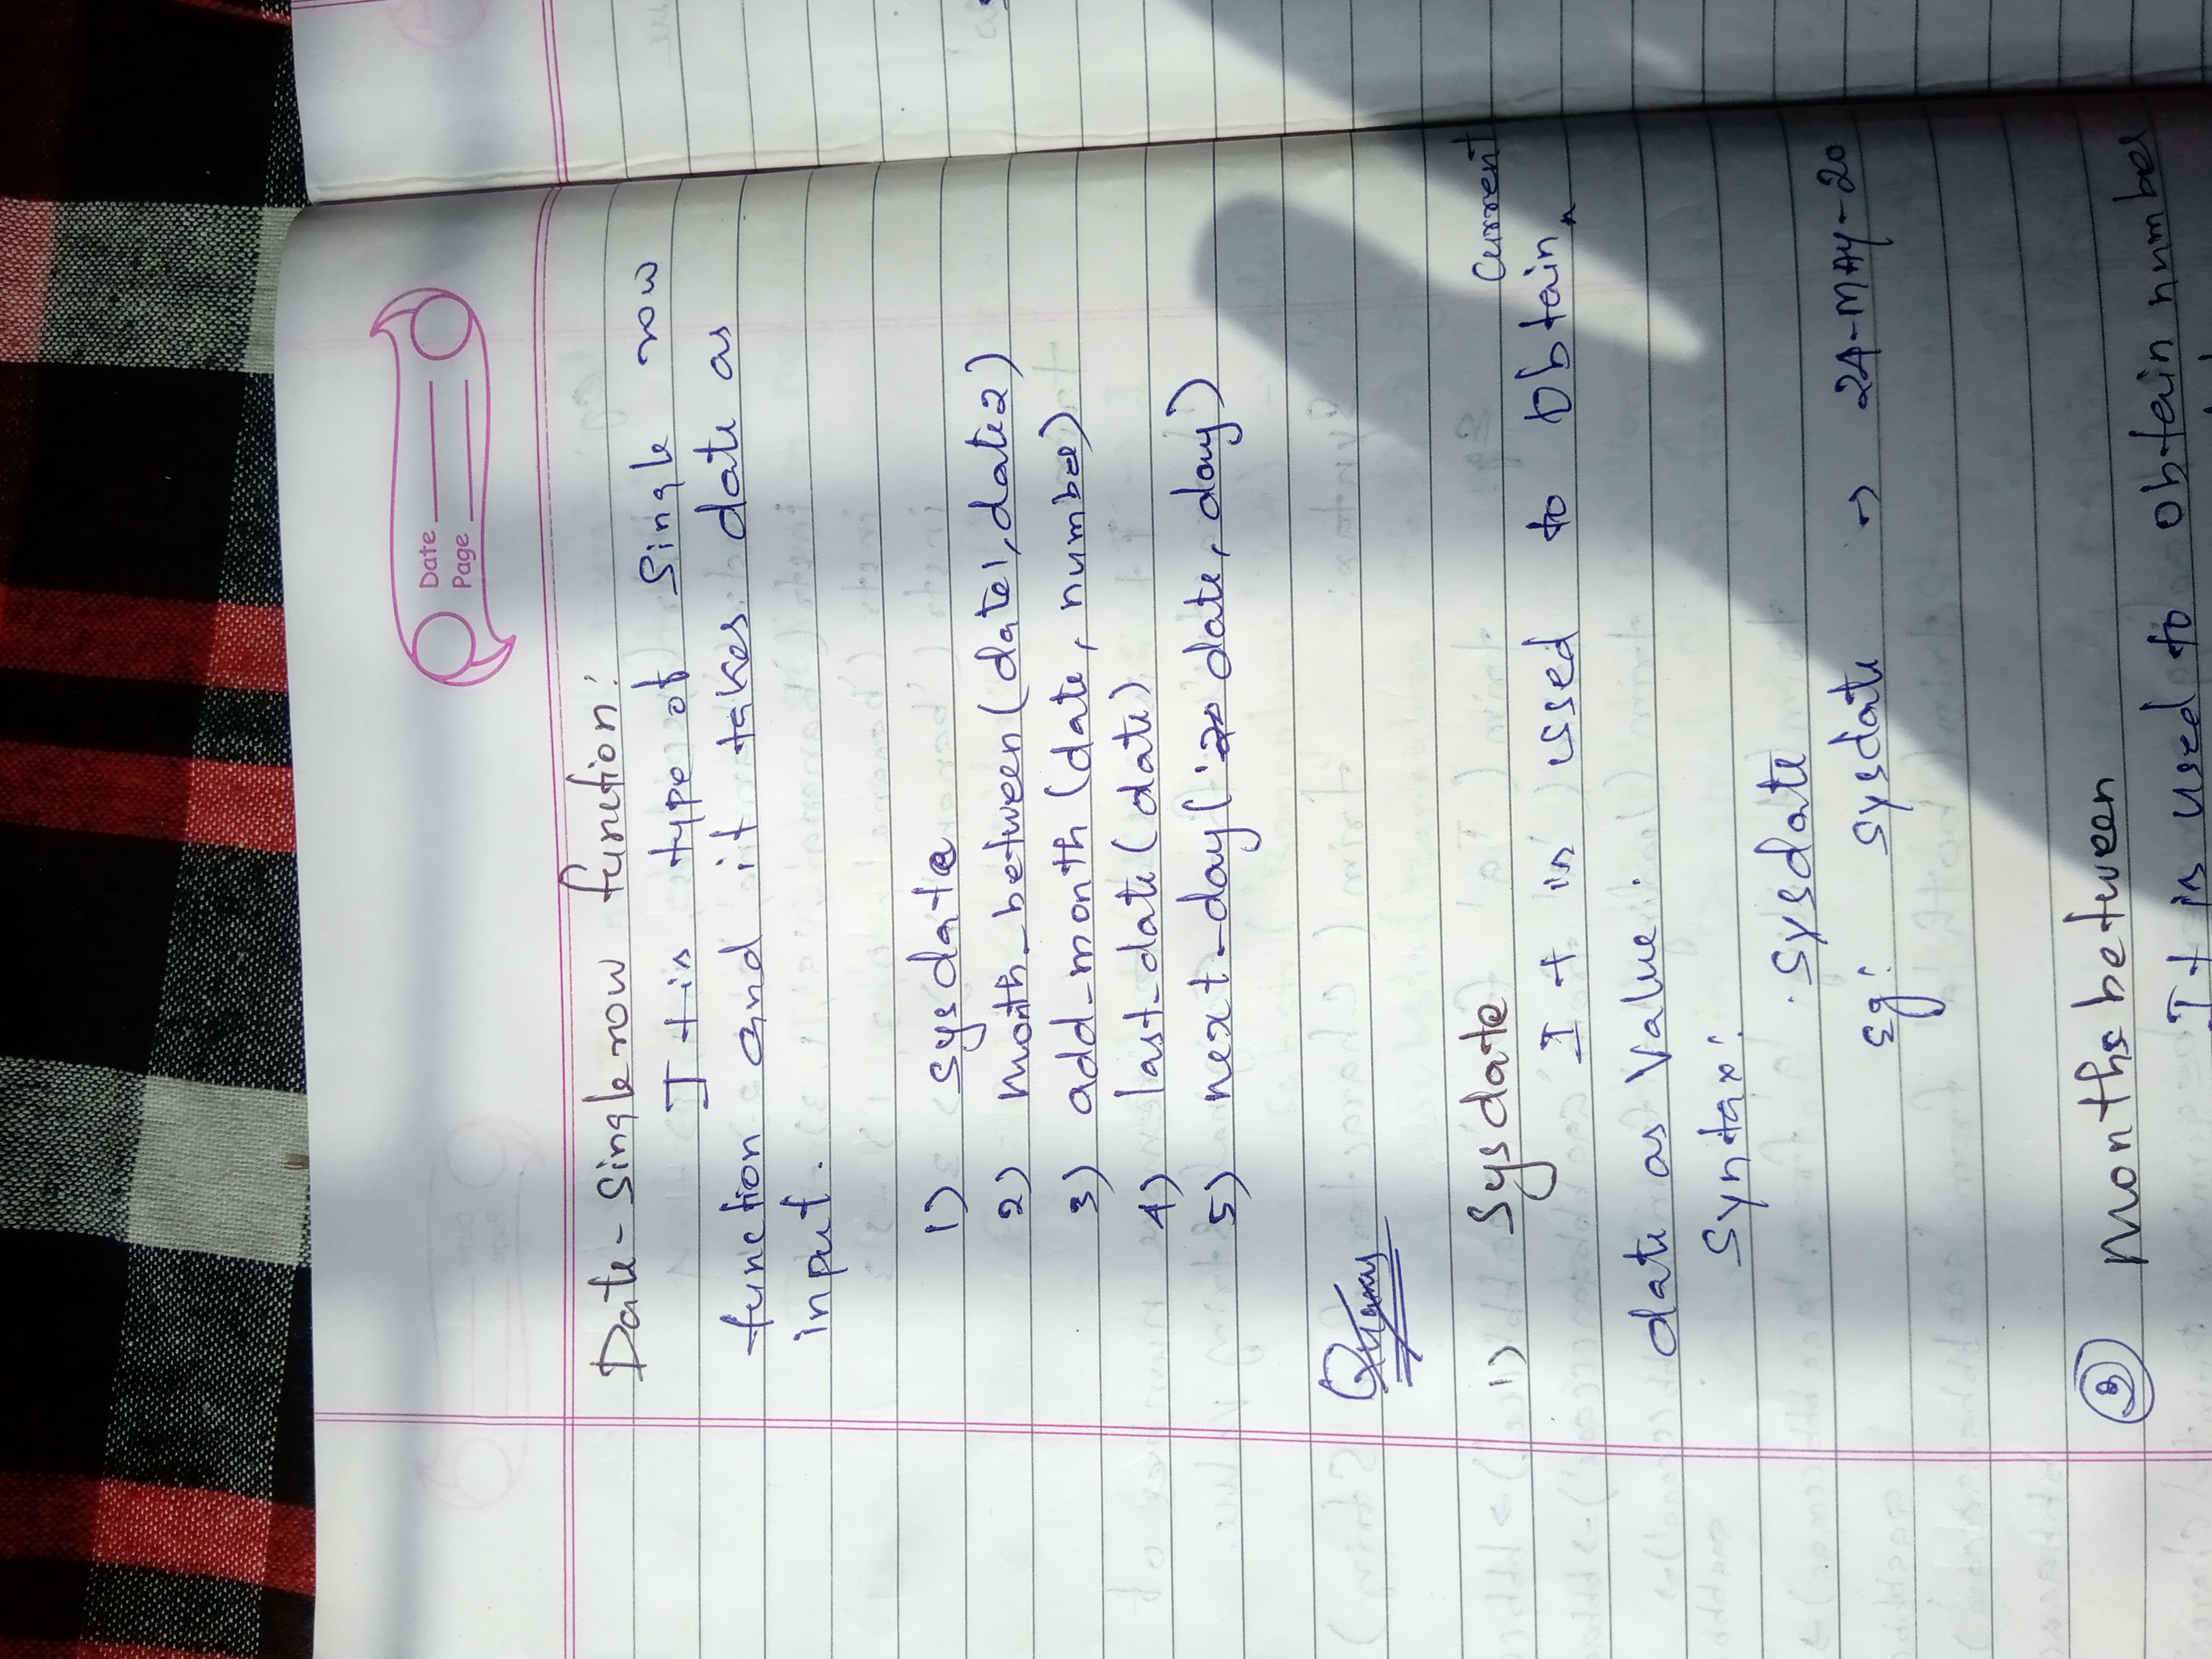 Date
Page
Date-Single row function:
It is type of Single row
function and it takes date as
input.
1) sysdate
2) month_between(date1,date2)
3) add_month(date, number)
4) last_date(date)
5) next_day(date, day)
1) Sysdate
Current
It is used to Obtain ^
date as Value
Syntax:
Sysdate
Eg: Sysdate → 24-MAY-20
2 Months between
It is used to obtain number